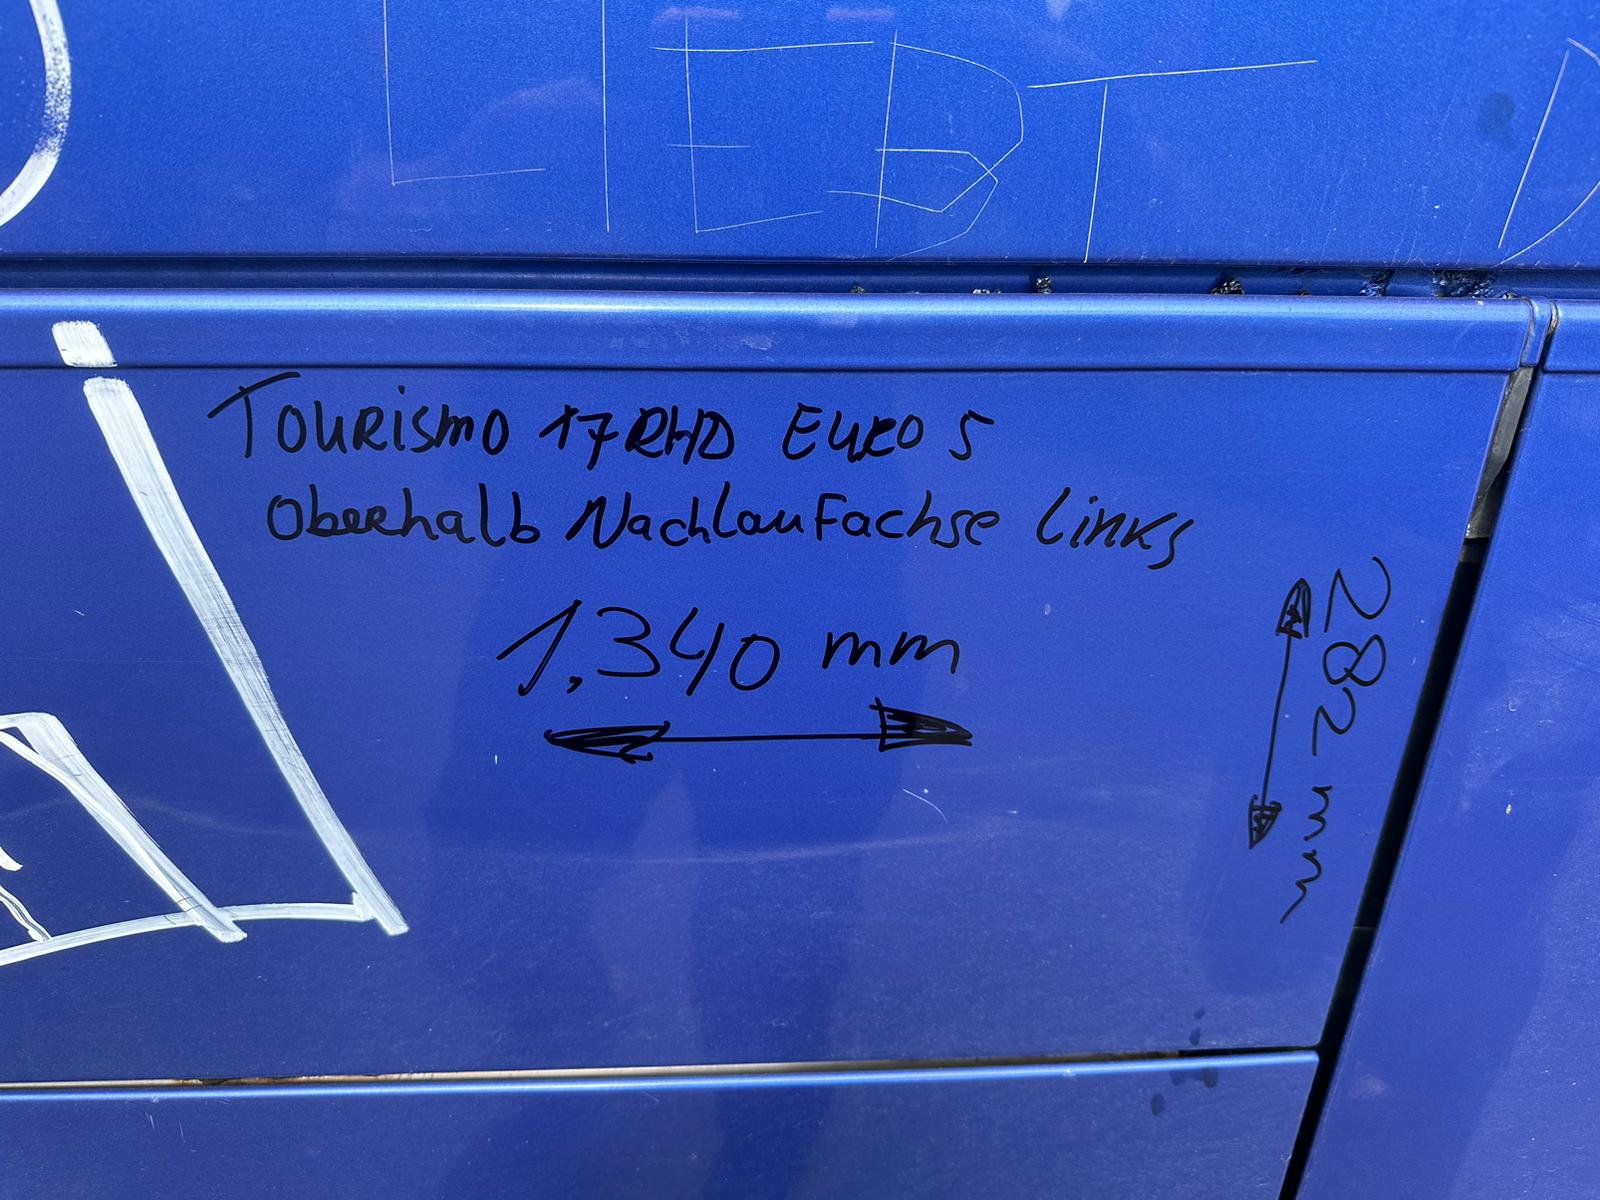 LIEBT
Tourismo 17RHD Euro 5
Oberhalb Nachlaufachse links
1,340 mm
282 mm